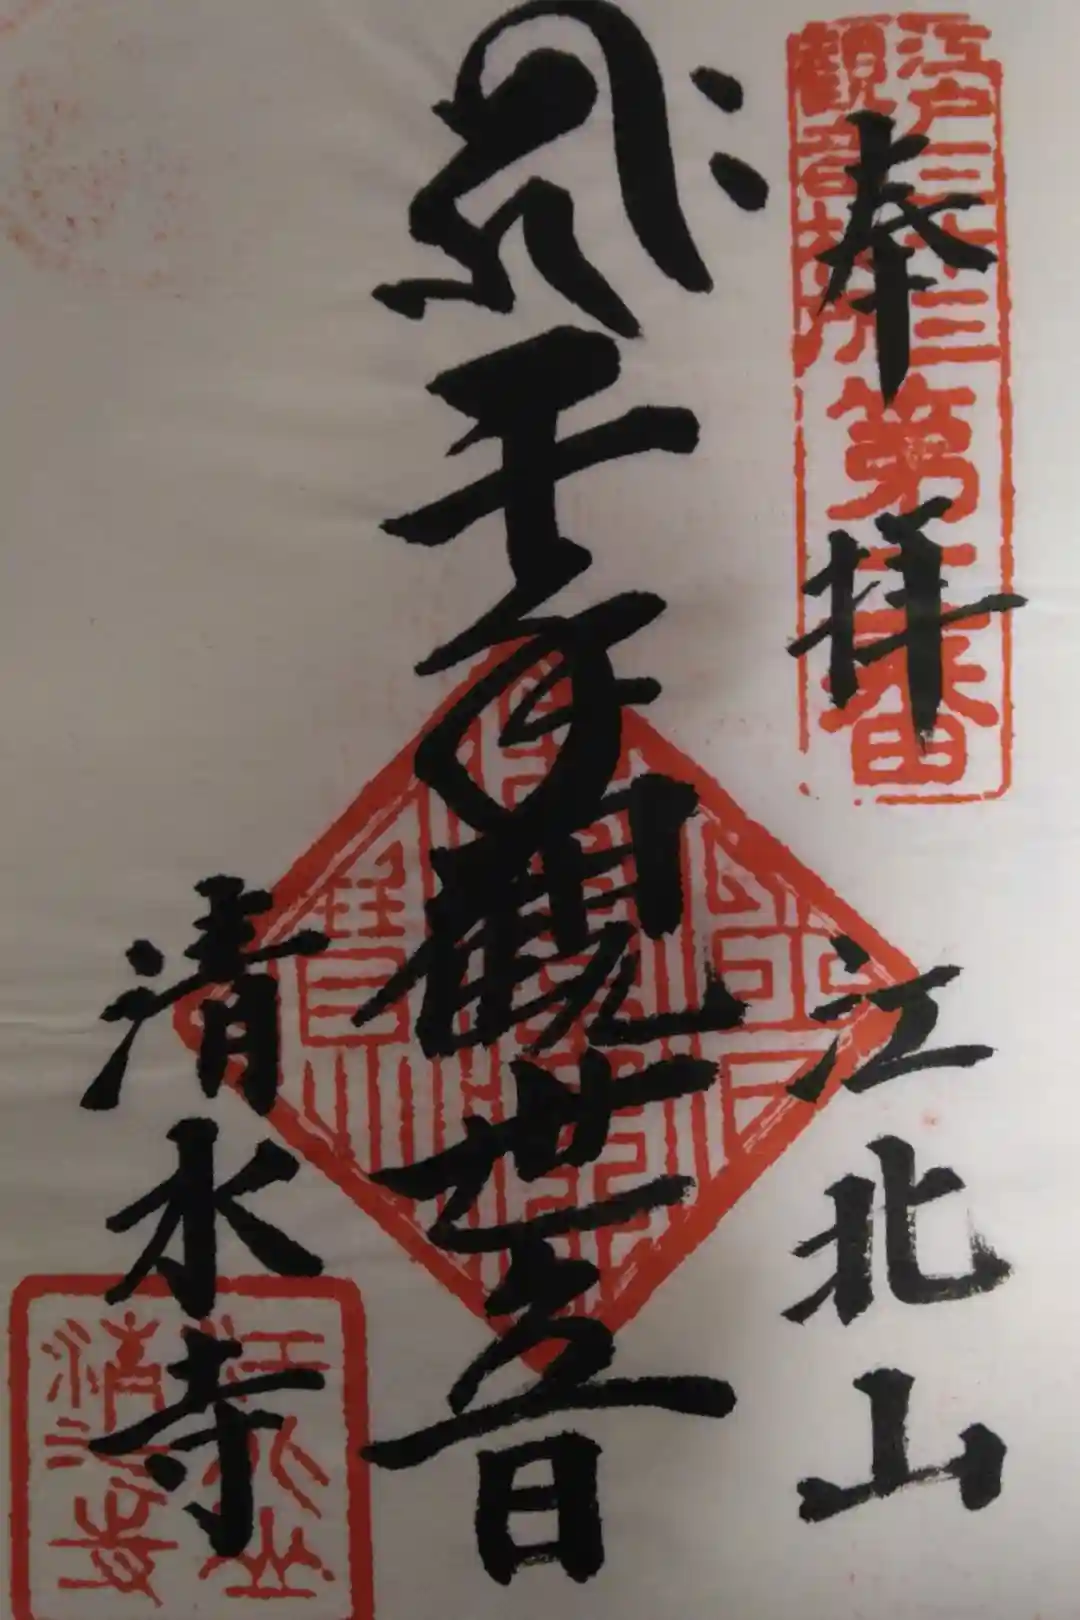 奉拝
江戸三十三
観音札所
第二番
江北山
千手観世音
清水寺
江北山
清水寺